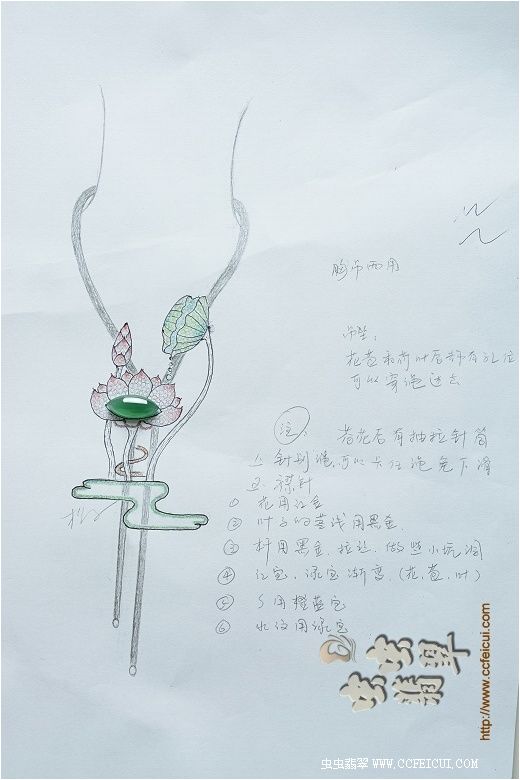 胸吊两用
吊坠：
花苞和荷叶后都有孔位
可以穿绳过去
注： 荷花后有抽拉针筒
1. 针别绳，可以卡住绳免下滑
2. 襟针
① 花用红金
② 叶子的茎线用黑金
③ 杆用黑金，拉丝，做些小坑洞
④ 红宝、绿宝渐变（花、苞、叶）
⑤ S用橙蓝宝
⑥ 水纹用绿宝
虫虫翡翠
http://www.ccfeicui.com
虫虫翡翠 WWW.CCFEICUI.COM